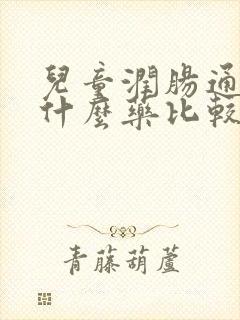 兒童潤腸通
什麼藥比較
青藤葫蘆